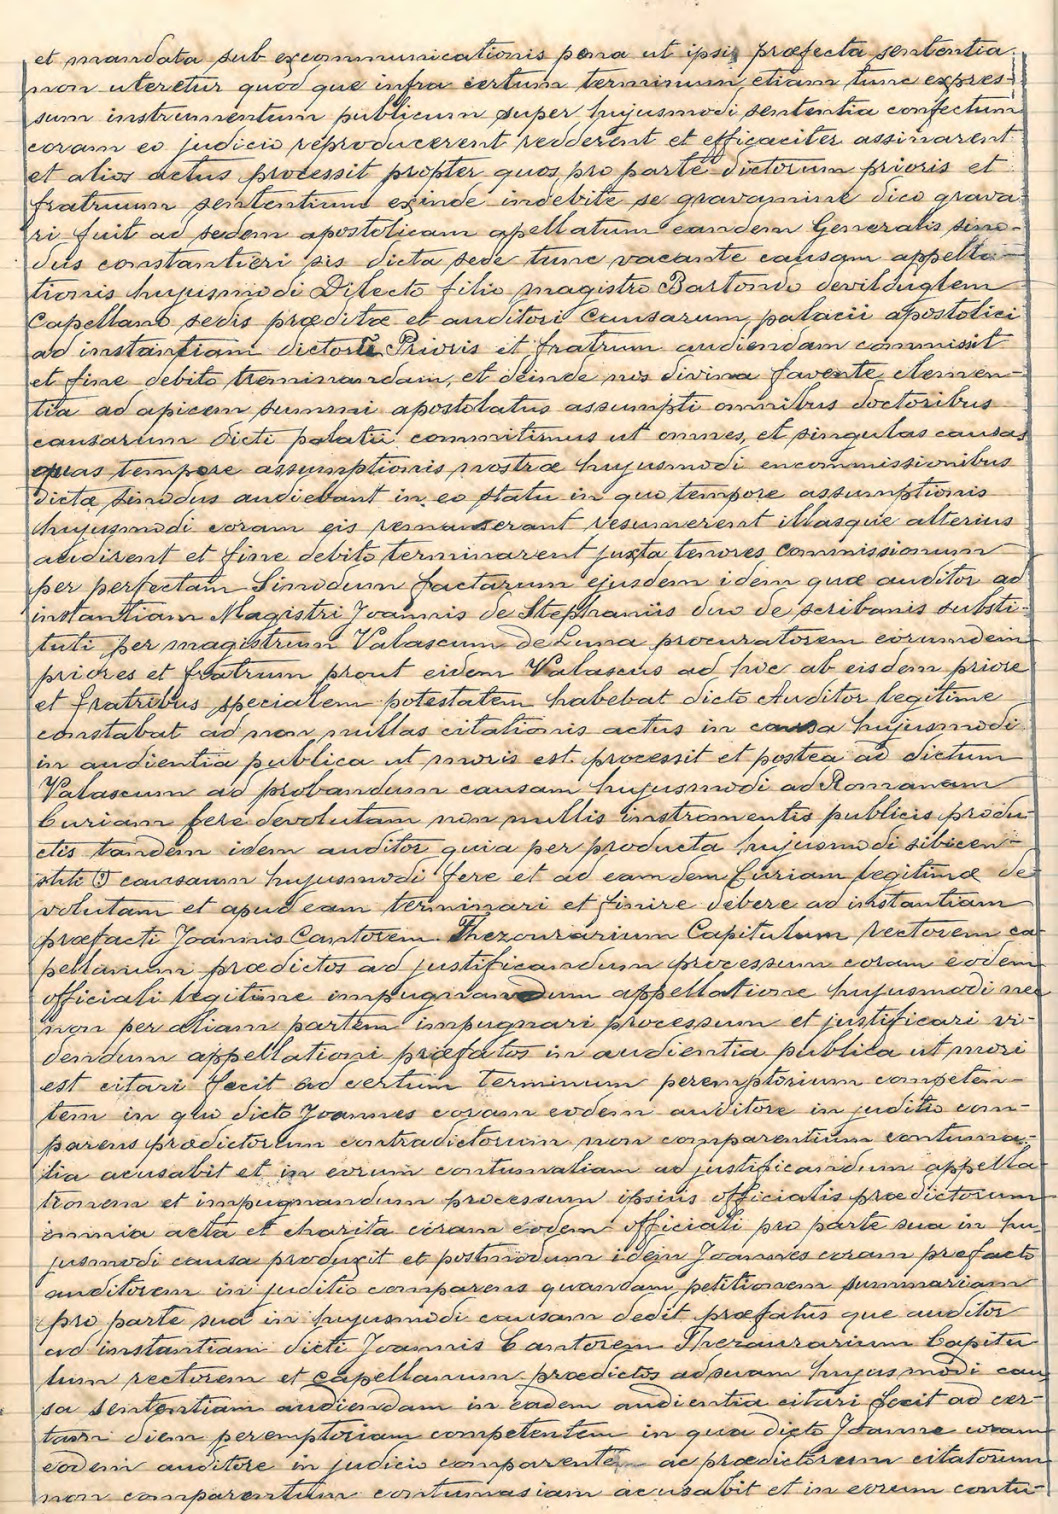 et mandata sub excommunicationis pena ut ipsis præfecta sententia
non uteretur quod que infra certum terminum etiam tunc expres-
sum instrumentum publicum super hujusmodi sententia confectum
coram eo judicio reproducerent redderent et efficaciter assinarent
et alios actus processit propter quos pro parte dictorum prioris et
fratruum sententium exinde indebite se gravamine dico grava
ri fuit ad sedem apostolicam apellatum eandem Generalis sino-
dus constantieri sis dicta sede tunc vacante causam appella-
tionis hujusmodi Dilecto filio magistro Bartondo devilduglem
Capellano sedis præditæ et auditori Causarum palacii apostolici
ad instantiam dictor Prioris et fratrum audiendam commissit
et fine debito treminandam, et deinde nos divina favente clemen-
tia ad apicem summi apostolatus assumpti omnibus doctoribus
causarum dicti palatii commitimus ut omnes, et singulas causas
quas tempore assumptionis nostræ hujusmodi encommissionibus
dictæ sinodus audiebant in eo statu in quo tempore assumptionis
hujusmodi coram eis remanserant resumerent illasque alterius
audirent et fine debito terminarent juxta tenores commissionum
per perfectam Sinodum factarum ejusdem idem quæ auditor ad
instantiam Magistri Joannis de Stephaniis duo de scribanis substi-
tuti per magistrum Valascum de Luna procuratorem eorumdem
priores et fratrum prout eidem Valascus ad hoc ab eisdem priore
et fratribus specialem potestatem habebat dicto Auditor legitime
constabat ad non nullas citationis actus in causa hujusmodi
in audientia publica ut moris est processit et postea ad dictum
Valascum ad probandum causam hujusmodi ad Romanam
Curiam fere devolutam non nullis instromentis publicis produ-
ctis tandem idem auditor quia per producta hujusmodi sibicen-
stiti (?) causaum hujusmodi fere et ad eamdem Curiam legitimæ de
volutam et apud eam terminari et finire debere ad instantiam
præfacti Joannis Cantorem Thezourarium Capitulum rectorem ca-
pellanum prædictos ad justificandum processum coram eodem
officiali legitime impugnandum appellatione hujusmodi nec
non per aliam partem impugnari processum et justificari vi-
dendum appellationi præfatos in audientia publica ut mori
est citari fecit ad certum terminum peremptorium competen-
tem in quo dicto Joannes coram eodem auditore in juditio com-
parens prædictorum contradictorum non comparentium contuma-
tia acusabit et in eorum contumaliam ad justificandum appella-
tionem et impugnandum processum ipsius officialis prædictorum
omnia acta et charita coram eodem officiali pro parte sua in hu
jusmodi causa produxit et postmodum idem Joannes coram prefacto
auditorem in juditio comparens quandam petitionem summariam
pro parte sua in hujusmodi causam dedit præfatus que auditor
ad instantiam dicti Joannis Cantorem Thezaurarium Capitu
lum rectorem et capellanum prædictos ad suam hujusmodi cau
sa sententiam audiendam in eadem audientia citari fecit ad cer-
tam diem peremptoriam competentem in qua dicto Joanne coram
eodem auditore in judicio comparente ac prædictorum citatorum
non comparentum contumasiam acusabit et in eorum contu-